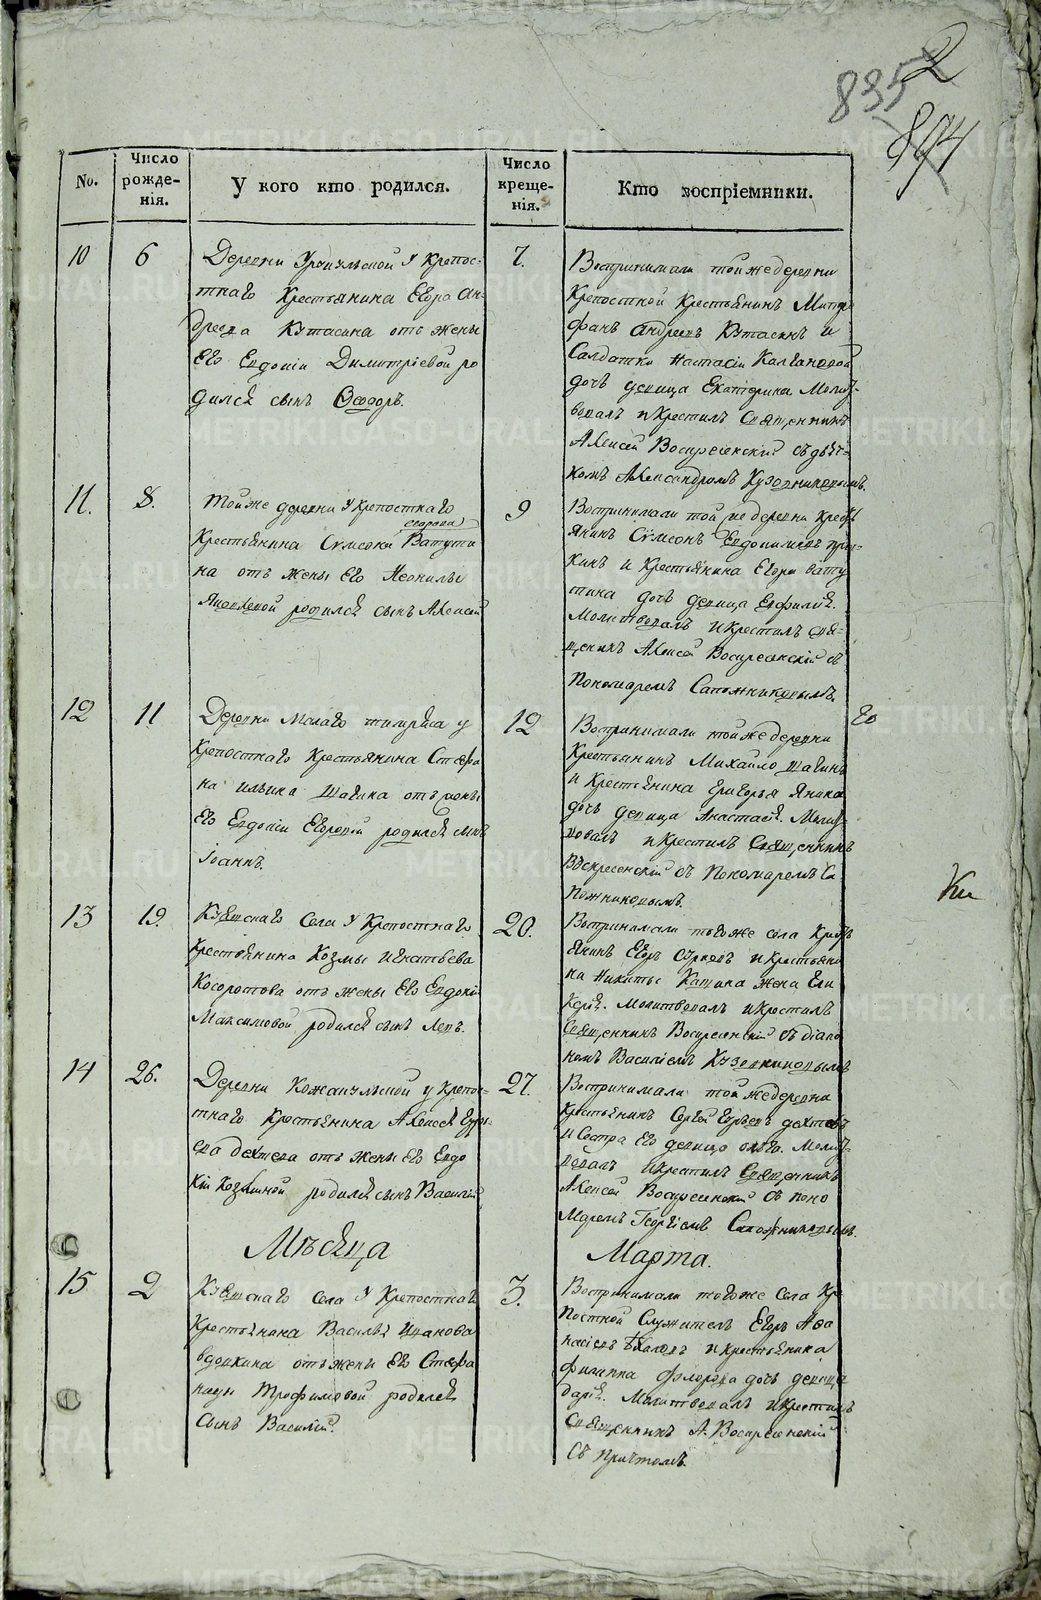 2
835
894
No.
Число рожденія.
У кого кто родился.
Число крещенія.
Кто воспріемники.
10
6
Деревни у крепос-
тнаго Крестьянина Егора Ан-
дреева Кутасина отъ жены
его Евдокіи Димитріевой ро
дился сынъ Ѳеодоръ.
7.
Воспринимали тойже деревни
Крепостной Крестьянинъ Митро
фанъ Андреевъ Кутасинъ и
Салдатки Настасіи Калгановой
дочь девица Екатерина Молит-
вовалъ и крестилъ Священникъ
Алексей Воскресенскій съ дьяч-
комъ Александромъ Кузовниковымъ.
11.
8.
Тойже деревни у крепостнаго
Крестьянина Сумеона Ватути
на отъ жены его Неонилы
Яковлевой родился сынъ Алексей
9
Воспринимали той же деревни Кресть
янинъ Сумеонъ Евдокимовъ
и Крестьянина Егора Вату
тина дочь девица
Молитвовалъ и крестилъ Свя-
щенникъ Алексей Воскресенскій съ
Пономаремъ Сапожниковымъ.
12
11
Деревни Малаго у
Крепостнаго Крестьянина Стефа
на Ильина Шагина отъ жены
его Евдокіи Егоровой родился сынъ
Іоаннъ.
12
Воспринимали тойже деревни
Крестьянинъ Михайло Шагинъ
и Крестьянина Григорья
дочь девица Анастасія. Молит-
вовалъ и крестилъ Священникъ
Воскресенскій съ Пономаремъ Са
пожниковымъ.
13
19.
села у Крепостнаго
Крестьянина Козмы Игнатьева
Косоротова отъ жены его Евдокіи
Максимовой родился сынъ Левъ.
20.
Воспринимали тогоже села Кресть
янинъ Егоръ и Крестьяни
на Никиты жена
Молитвовалъ и крестилъ
Священникъ Воскресенскій съ діако
номъ Василіемъ Кузовниковымъ
14
26.
Деревни у крепос-
тнаго Крестьянина Алексея
отъ жены его Евдо
кіи Козминой родился сынъ Василій
27.
Воспринимали тойже деревни
Крестьянинъ Сергей
и сестра его девица Молит-
вовалъ и крестилъ Священникъ
Алексей Воскресенскій съ поно
маремъ Георгіемъ Сапожниковымъ.
Мѣсяца
Марта.
15
2
села у Крепостнаго
Крестьянина Василья Иванова
Вдовкина отъ жены его Стефа
ниды Трофимовой родился
сынъ Василій.
3.
Воспринимали тогоже села Кре
постной Служитель Егоръ Афа
насіевъ и крестьянина
Филиппа дочь девица
Дарія. Молитвовалъ и крестилъ
Священникъ А. Воскресенскій
съ причтомъ.
METRIKI.GASO-URAL.RU